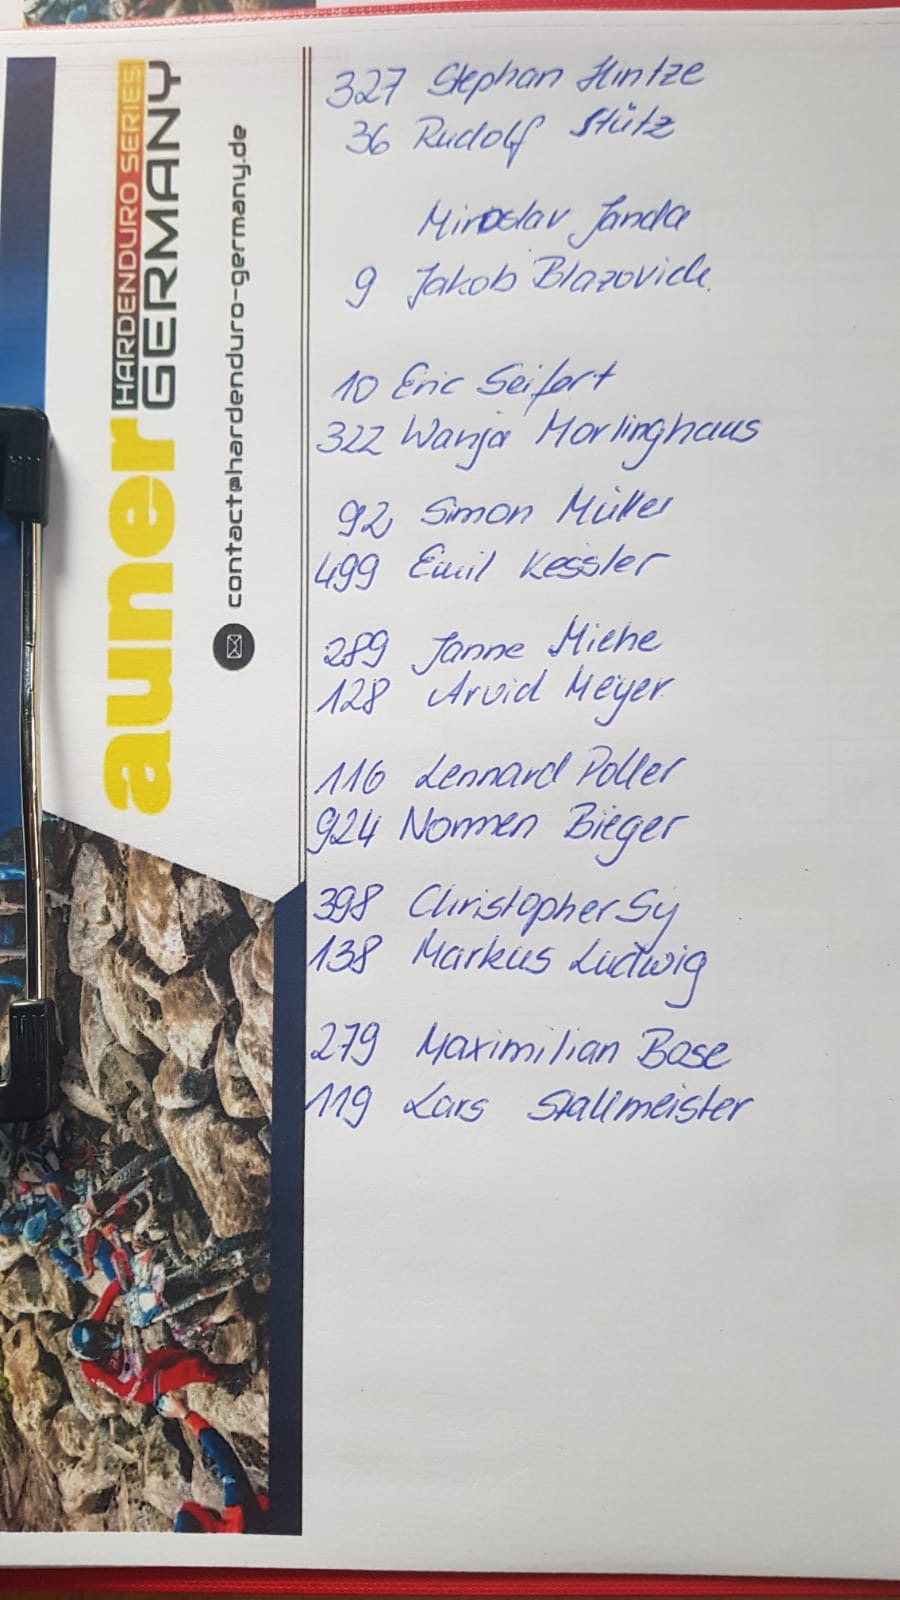 auner HARDENDURO SERIES
GERMANY
contact@hardenduro-germany.de
327 Stephan Hintze
36 Rudolf Stütz
Miroslav Janda
9 Jakob Blazovich
10 Eric Seifert
322 Wanja Morlinghaus
92 Simon Müller
499 Emil Kessler
289 Janne Miehe
128 Arvid Meyer
116 Lennard Poller
924 Normen Bieger
398 Christopher Sy
138 Markus Ludwig
279 Maximilian Bose
119 Lars Stallmeister